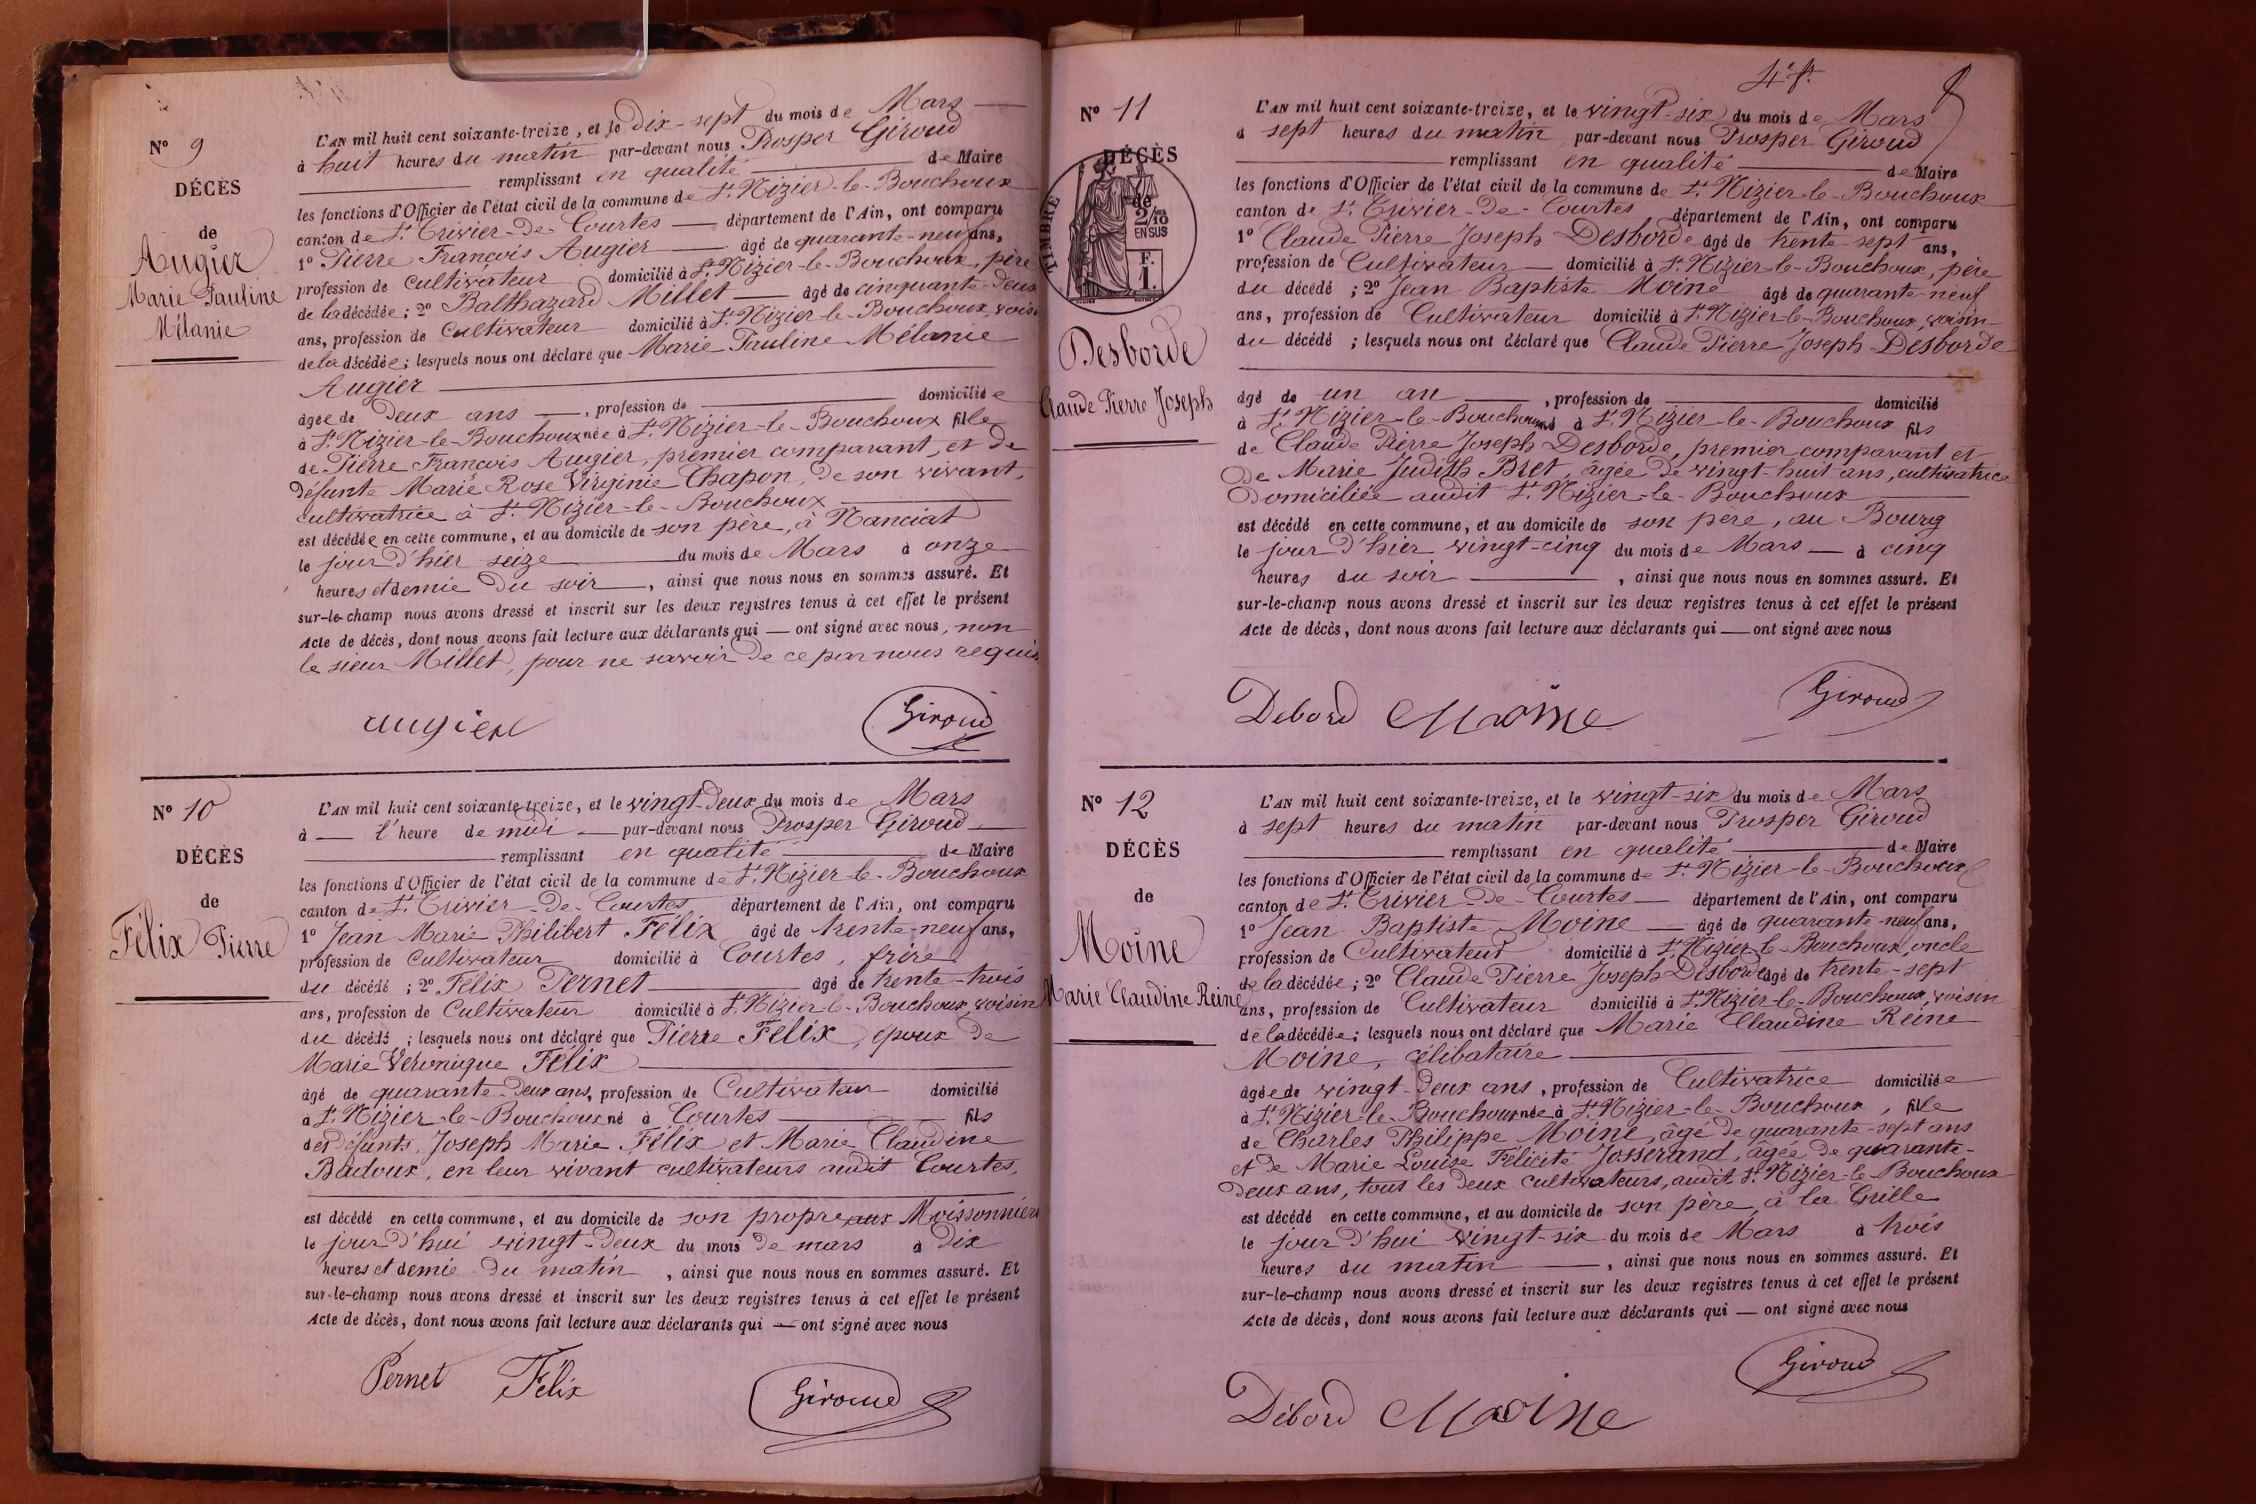 N° 9
DÉCÈS
de
Augier
Marie Pauline
Mélanie
L'AN mil huit cent soixante-treize, et le dix-sept du mois de Mars
à huit heures du matin par-devant nous Prosper Giroud
remplissant en qualité de Maire
les fonctions d'Officier de l'état civil de la commune de St Nizier-le-Bouchoux
canton de St Trivier-de-Courtes département de l'Ain, ont comparu
1° Pierre François Augier âgé de quarante-neuf ans,
profession de cultivateur domicilié à St Nizier-le-Bouchoux, père
de la décédée; 2° Balthazard Millet âgé de cinquante-deux
ans, profession de Cultivateur domicilié à St Nizier-le-Bouchoux, voisin
de la décédée; lesquels nous ont déclaré que Marie Pauline Mélanie
Augier
âgée de deux ans, profession de domiciliée
à St Nizier-le-Bouchoux née à St Nizier-le-Bouchoux fille
de Pierre François Augier, premier comparant, et de
défunte Marie Rose Virginie Chapon, de son vivant,
cultivatrice à St Nizier-le-Bouchoux
est décédée en cette commune, et au domicile de son père, à Nanciat
le jour d'hier seize du mois de Mars à onze
heures et demie du soir, ainsi que nous nous en sommes assuré. Et
sur-le-champ nous avons dressé et inscrit sur les deux registres tenus à cet effet le présent
Acte de décès, dont nous avons fait lecture aux déclarants qui — ont signé avec nous, non
le sieur Millet, pour ne savoir de ce par nous requis
augier Giroud
N° 10
DÉCÈS
de
Félix Pierre
L'AN mil huit cent soixante-treize, et le vingt-deux du mois de Mars
à — l'heure de midi — par-devant nous Prosper Giroud
remplissant en qualité de Maire
les fonctions d'Officier de l'état civil de la commune de St Nizier-le-Bouchoux
canton de St Trivier-de-Courtes département de l'Ain, ont comparu
1° Jean Marie Philibert Félix âgé de trente-neuf ans,
profession de Cultivateur domicilié à Courtes, frère
du décédé; 2° Félix Pernet âgé de trente-trois
ans, profession de Cultivateur domicilié à St Nizier-le-Bouchoux, voisin
du décédé; lesquels nous ont déclaré que Pierre Félix, époux de
Marie Véronique Félix
âgé de quarante-deux ans, profession de Cultivateur domicilié
à St Nizier-le-Bouchoux né à Courtes fils
des défunts Joseph Marie Félix et Marie Claudine
Badoux, en leur vivant cultivateurs audit Courtes.
est décédé en cette commune, et au domicile de son propre aux Moissonniers
le jour d'hui vingt-deux du mois de mars à dix
heures et demie du matin, ainsi que nous nous en sommes assuré. Et
sur-le-champ nous avons dressé et inscrit sur les deux registres tenus à cet effet le présent
Acte de décès, dont nous avons fait lecture aux déclarants qui — ont signé avec nous
Pernet Félix Giroud
4e ft.
N° 11
DÉCÈS
de
TIMBRE
2/10
EN SUS
F.
1.
Desborde
Claude Pierre Joseph
L'AN mil huit cent soixante-treize, et le vingt-six du mois de Mars
à sept heures du matin par-devant nous Prosper Giroud
remplissant en qualité de Maire
les fonctions d'Officier de l'état civil de la commune de St Nizier-le-Bouchoux
canton de St Trivier-de-Courtes département de l'Ain, ont comparu
1° Claude Pierre Joseph Desborde âgé de trente-sept ans,
profession de Cultivateur domicilié à St Nizier-le-Bouchoux, père
du décédé; 2° Jean Baptiste Moine âgé de quarante-neuf
ans, profession de Cultivateur domicilié à St Nizier-le-Bouchoux, voisin
du décédé; lesquels nous ont déclaré que Claude Pierre Joseph Desborde
âgé de un an, profession de domicilié
à St Nizier-le-Bouchoux né à St Nizier-le-Bouchoux fils
de Claude Pierre Joseph Desborde, premier comparant et
de Marie Judith Bret, âgée de vingt-huit ans, cultivatrice
domiciliée audit St Nizier-le-Bouchoux
est décédé en cette commune, et au domicile de son père, au Bourg
le jour d'hier vingt-cinq du mois de Mars à cinq
heures du soir, ainsi que nous nous en sommes assuré. Et
sur-le-champ nous avons dressé et inscrit sur les deux registres tenus à cet effet le présent
Acte de décès, dont nous avons fait lecture aux déclarants qui — ont signé avec nous
Debord Moine Giroud
N° 12
DÉCÈS
de
Moine
Marie Claudine Reine
L'AN mil huit cent soixante-treize, et le vingt-six du mois de Mars
à sept heures du matin par-devant nous Prosper Giroud
remplissant en qualité de Maire
les fonctions d'Officier de l'état civil de la commune de St Nizier-le-Bouchoux
canton de St Trivier-de-Courtes département de l'Ain, ont comparu
1° Jean Baptiste Moine âgé de quarante-neuf ans,
profession de Cultivateur domicilié à St Nizier-le-Bouchoux, oncle
de la décédée; 2° Claude Pierre Joseph Desborde âgé de trente-sept
ans, profession de Cultivateur domicilié à St Nizier-le-Bouchoux, voisin
de la décédée; lesquels nous ont déclaré que Marie Claudine Reine
Moine, célibataire
âgée de vingt-deux ans, profession de Cultivatrice domiciliée
à St Nizier-le-Bouchoux née à St Nizier-le-Bouchoux, fille
de Charles Philippe Moine, âgé de quarante-sept ans
et de Marie Louise Félicité Josserand, âgée de quarante-
deux ans, tous les deux cultivateurs, audit St Nizier-le-Bouchoux
est décédé en cette commune, et au domicile de son père, à la Grille
le jour d'hui vingt-six du mois de Mars à trois
heures du matin, ainsi que nous nous en sommes assuré. Et
sur-le-champ nous avons dressé et inscrit sur les deux registres tenus à cet effet le présent
Acte de décès, dont nous avons fait lecture aux déclarants qui — ont signé avec nous
Débord Moine Giroud